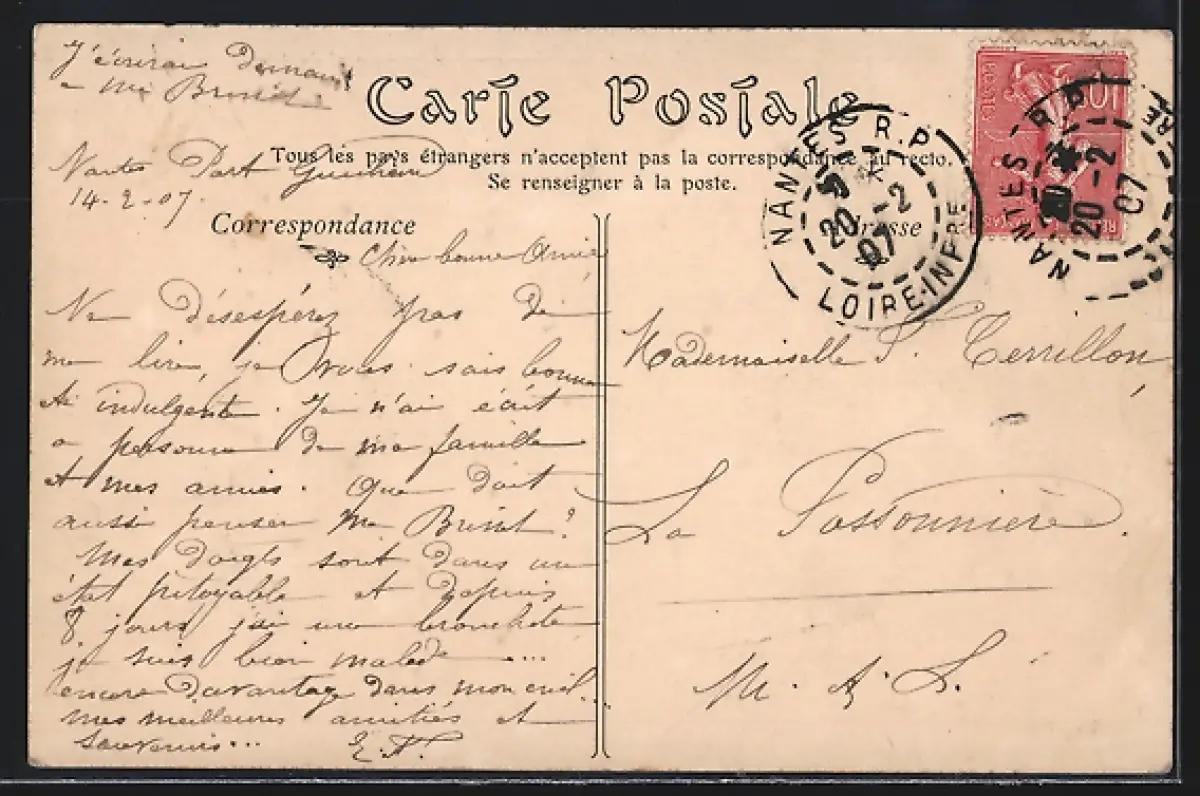 J'écrirai Demain
à Me
Carte Postale
Tous les pays étrangers n'acceptent pas la correspondance au recto.
Se renseigner à la poste.
Nantes Port
14-2-07.
Correspondance
Adresse
Chère bonne Amie
Ne désespérez pas de
me lire, je vous sais bonne
et indulgente. Je n'ai écrit
a personne de ma famille
et mes amies. Que doit
aussi penser Me Brist?
Mes doigts sont dans un
état pitoyable et depuis
8 jours j'ai une bronchite
je suis bien malade ....
encore davantage dans mon exil..
mes meilleures amitiés et
souvenirs... E.F.
Mademoiselle P. Terrillon,
La Possonnière.
M. & L.
NANTES R.P.
20-2
07
LOIRE-INFRE
POSTES
10
NANTES R.P.
20-2
07
RE